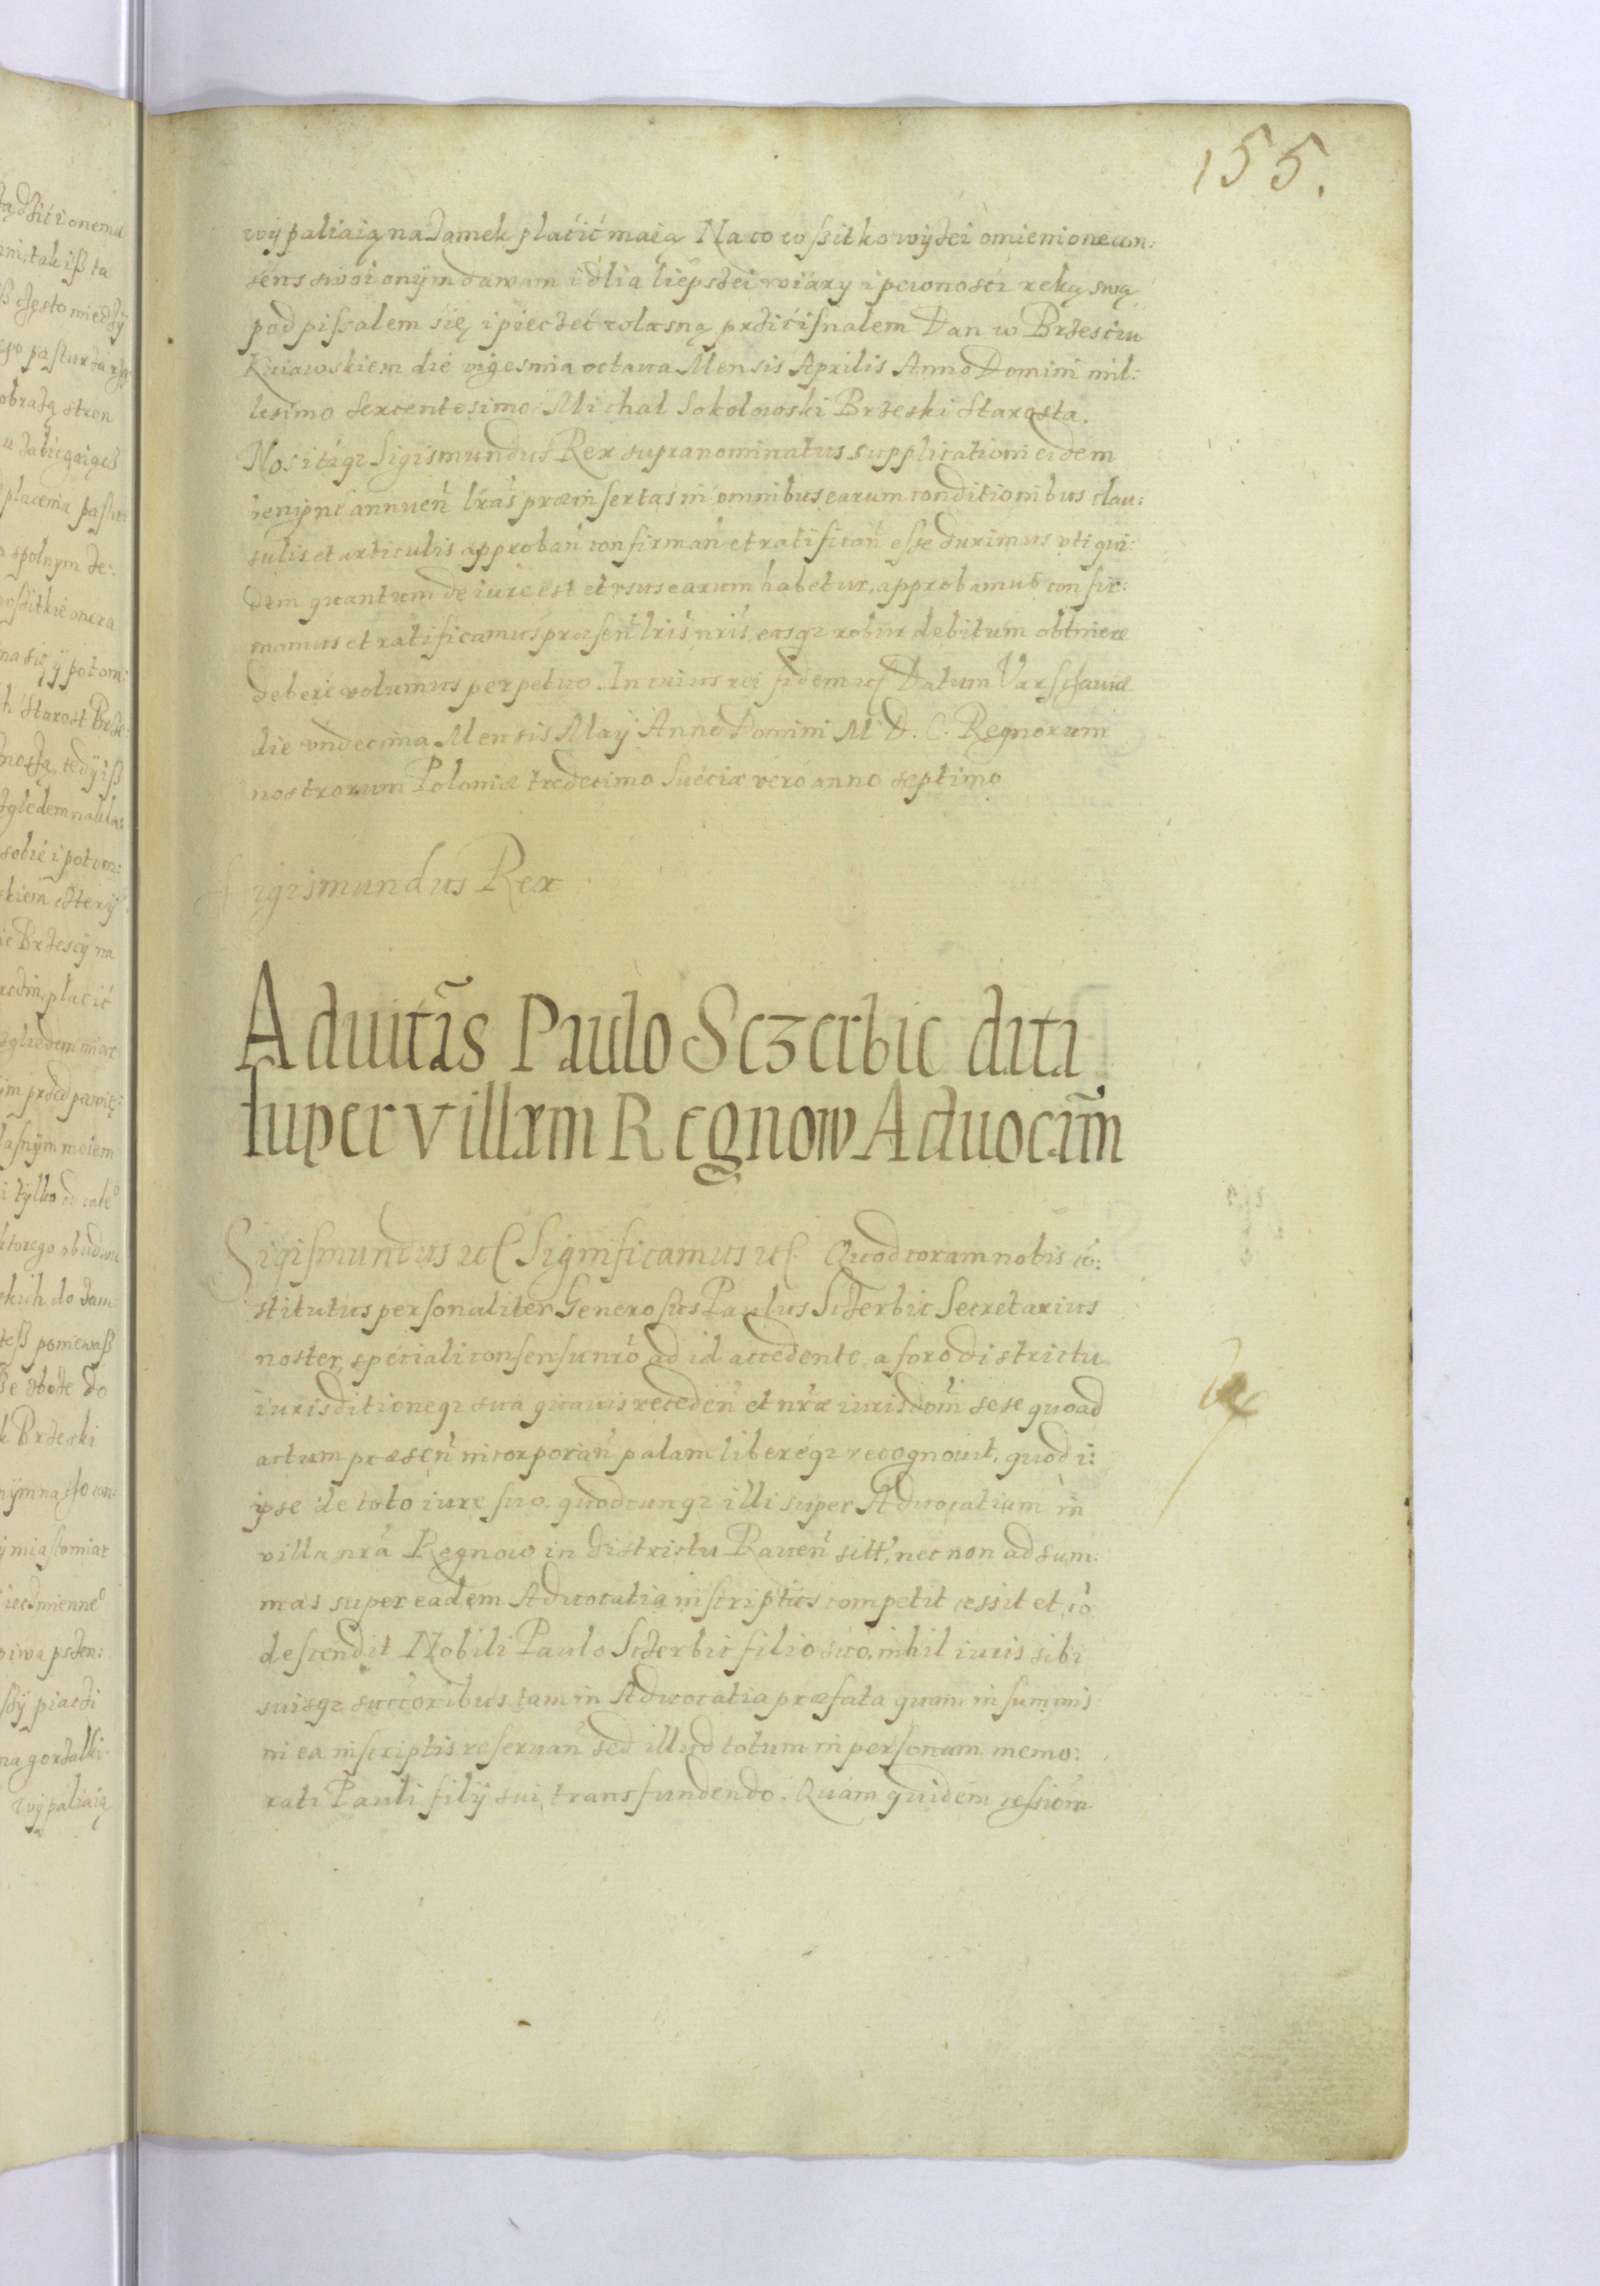 155.
wÿpaliaią na zamek płacić maią Na to wssitko wyżei omienione con:
sens swoi onÿm dawam i dlia liepszei wiary i pewnosci reką swą
podpissalem się i pieczeć wlasną przićisnalem Dan w Brzesciu
Kuiawskiem die vigesima octaua Mensis Aprilis Anno Domini mil:
lesimo sexcentesimo Michal Sokolowski Brzeski Starosta.
Nos itaqz Sigismundus Rex supranominatus supplicationi eidem
benigne annuen̄ lr̄as præinsertas in omnibus earum conditionibus clau:
sulis et articulis approban̄ confirman̄ et ratifican̄ esse duximus vti qui:
dem quantum de iure est et vsus earum habetur, approbamus confir:
mamus et ratificamus præsen̄ lr̄is nr̄is easqz robur debitum obtinere
debere volumus perpetuo. In cuius rei fidem uc̄ Datum Varschauiæ
die vndecima Mensis Maÿ Anno Domini M. D. C. Regnorum
nostrorum Poloniæ tredecimo Sueciæ vero anno septimo
Sigismundus Rex
Aduitās Paulo Sczerbic data
super villam Regnow Aduocām
Sigismundus uc̄ Significamus uc̄. Quod coram nobis cō:
stitutus personaliter Generosus Paulus Sczerbic Secretarius
noster, speciali consensu nr̄o ad id accedente, a foro districtu
iurisditioneqz sua quauis receden̄ et nr̄æ iurisdōni sese quoad
actum præsen̄ incorporan̄ palam libereqz recognouit, quod i:
ipse de toto iure suo. quodcunqz illi super Aduocatiam in
villa nr̄a Regnow in districtu Rauen̄ sitt, nec non ad sum:
mas super eadem Aduocatia inscriptas competit cessit et cō
descendit Nobili Paulo Sczerbic filio suo, nihil iuris sibi
suisqz succōribus tam in Aduocatia præfata quam in summis
in ea inscriptis reseruan̄ sed illud totum in personam memo:
rati Pauli filÿ sui transfundendo. Quam quidem cessiōm